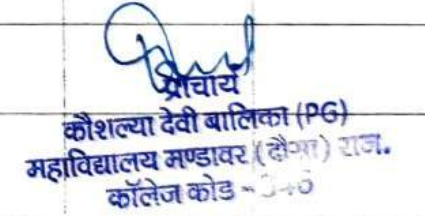 प्राचार्य
कौशल्या देवी बालिका (PG)
महाविद्यालय मण्डावर (दौसा) राज.
कॉलेज कोड -